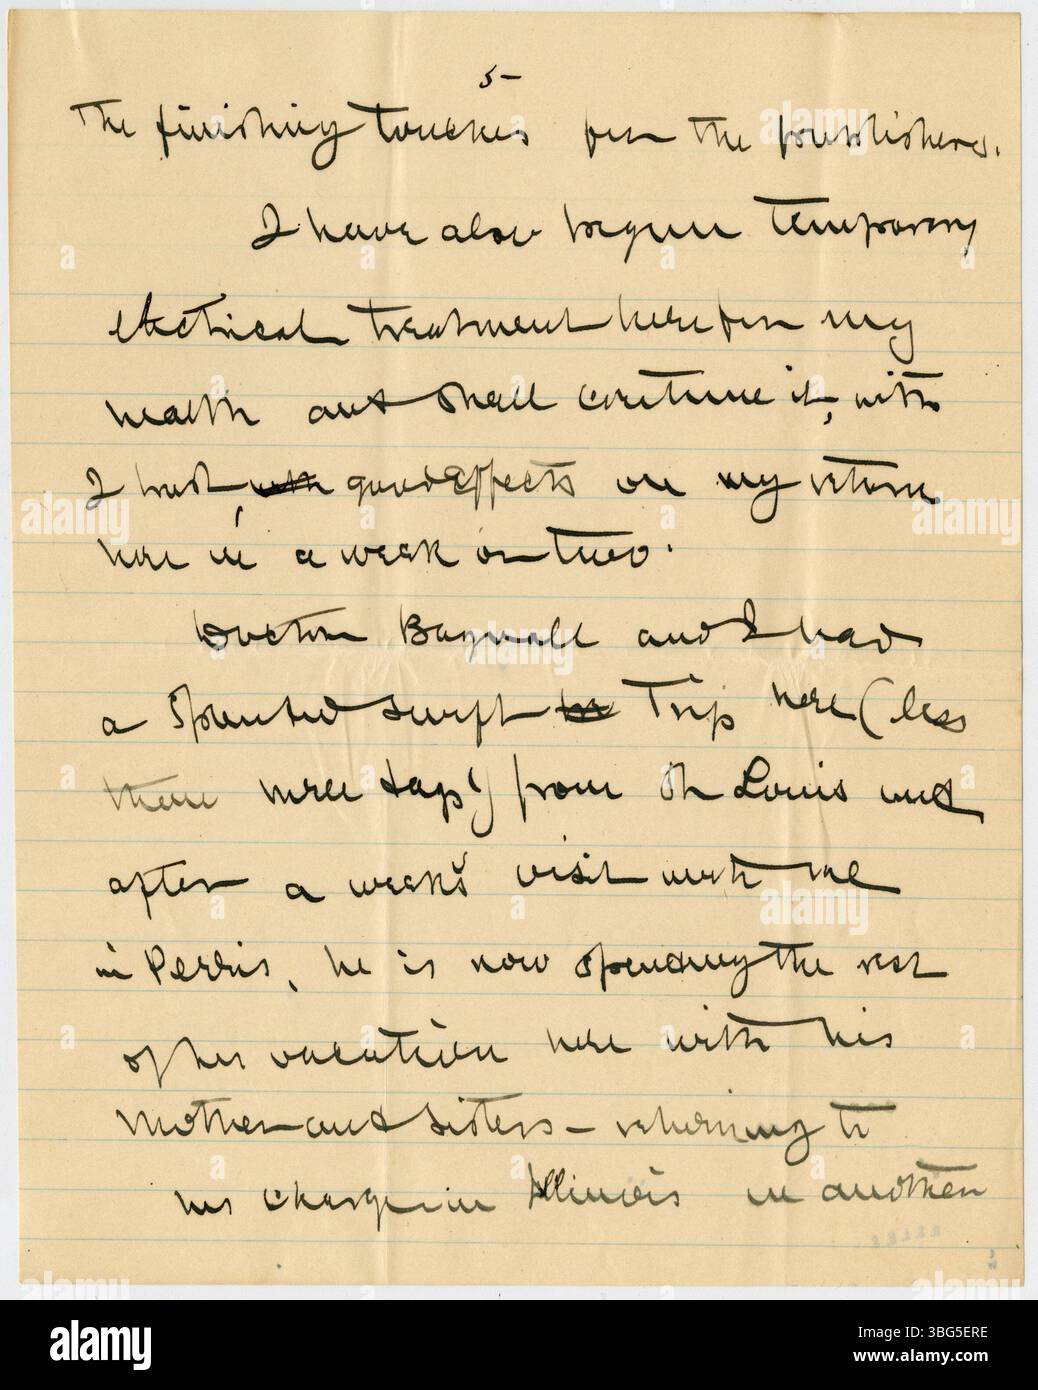 5-
The finishing touches for the publishers.
I have also begun temporary
electrical treatment here for my
health and shall continue it, with
I trust, with good effects on my return
here in a week or two.
Doctor Bagnall and I had
a splendid swift tr Trip here (less
than three days) from St Louis and
after a week's visit with me
in Perris, he is now spending the rest
of his vacation here with his
mother and sisters - returning to
his charge in Illinois in another
alamy
Image ID: 3BG5ERE
www.alamy.com